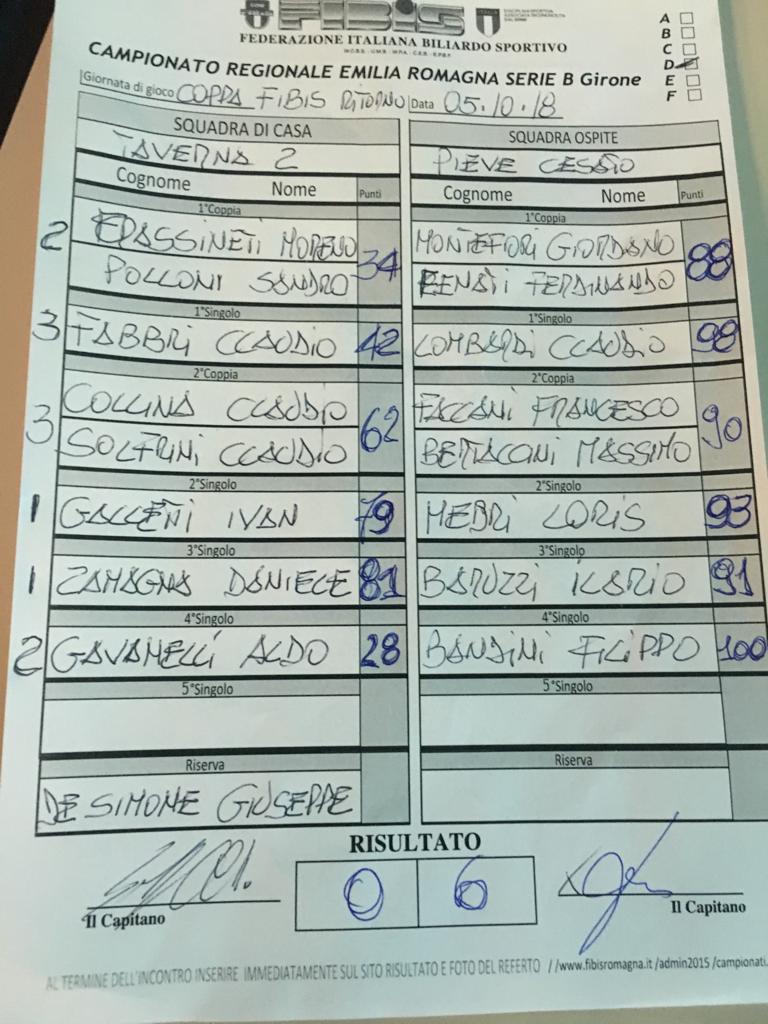 FIBIS
A
FEDERAZIONE ITALIANA BILIARDO SPORTIVO
B
C
CAMPIONATO REGIONALE EMILIA ROMAGNA SERIE B Girone
D
E
F
Giornata di gioco COPPA FIBIS RITORNO Data 05.10.18
SQUADRA DI CASA SQUADRA OSPITE
TAVERNA 2 PIEVE
Cognome Nome Punti Cognome Nome Punti
1°Coppia 1°Coppia
2 SPASSINETI MORENO 34 MONTEFORI GIORDANO 88
POLLONI SANDRO BENATI FERDINANDO
1°Singolo 1°Singolo
3 FABBRI CLAUDIO 42 LOMBARDI CLAUDIO 98
2°Coppia 2°Coppia
3 COLLINA CLAUDIO 62 FACCANI FRANCESCO 90
SOLFRINI CLAUDIO BERTACCINI MASSIMO
2°Singolo 2°Singolo
1 GALLETTI IVAN 79 NEBRI LORIS 93
3°Singolo 3°Singolo
1 ZAMAGNA DANIELE 81 BARUZZI ILARIO 91
4°Singolo 4°Singolo
2 GAVANELLI ALDO 28 BANDINI FILIPPO 100
5°Singolo 5°Singolo
Riserva Riserva
DE SIMONE GIUSEPPE
RISULTATO
0 6
Il Capitano Il Capitano
AL TERMINE DELL'INCONTRO INSERIRE IMMEDIATAMENTE SUL SITO RISULTATO E FOTO DEL REFERTO //www.fibisromagna.it /admin2015 /campionati.